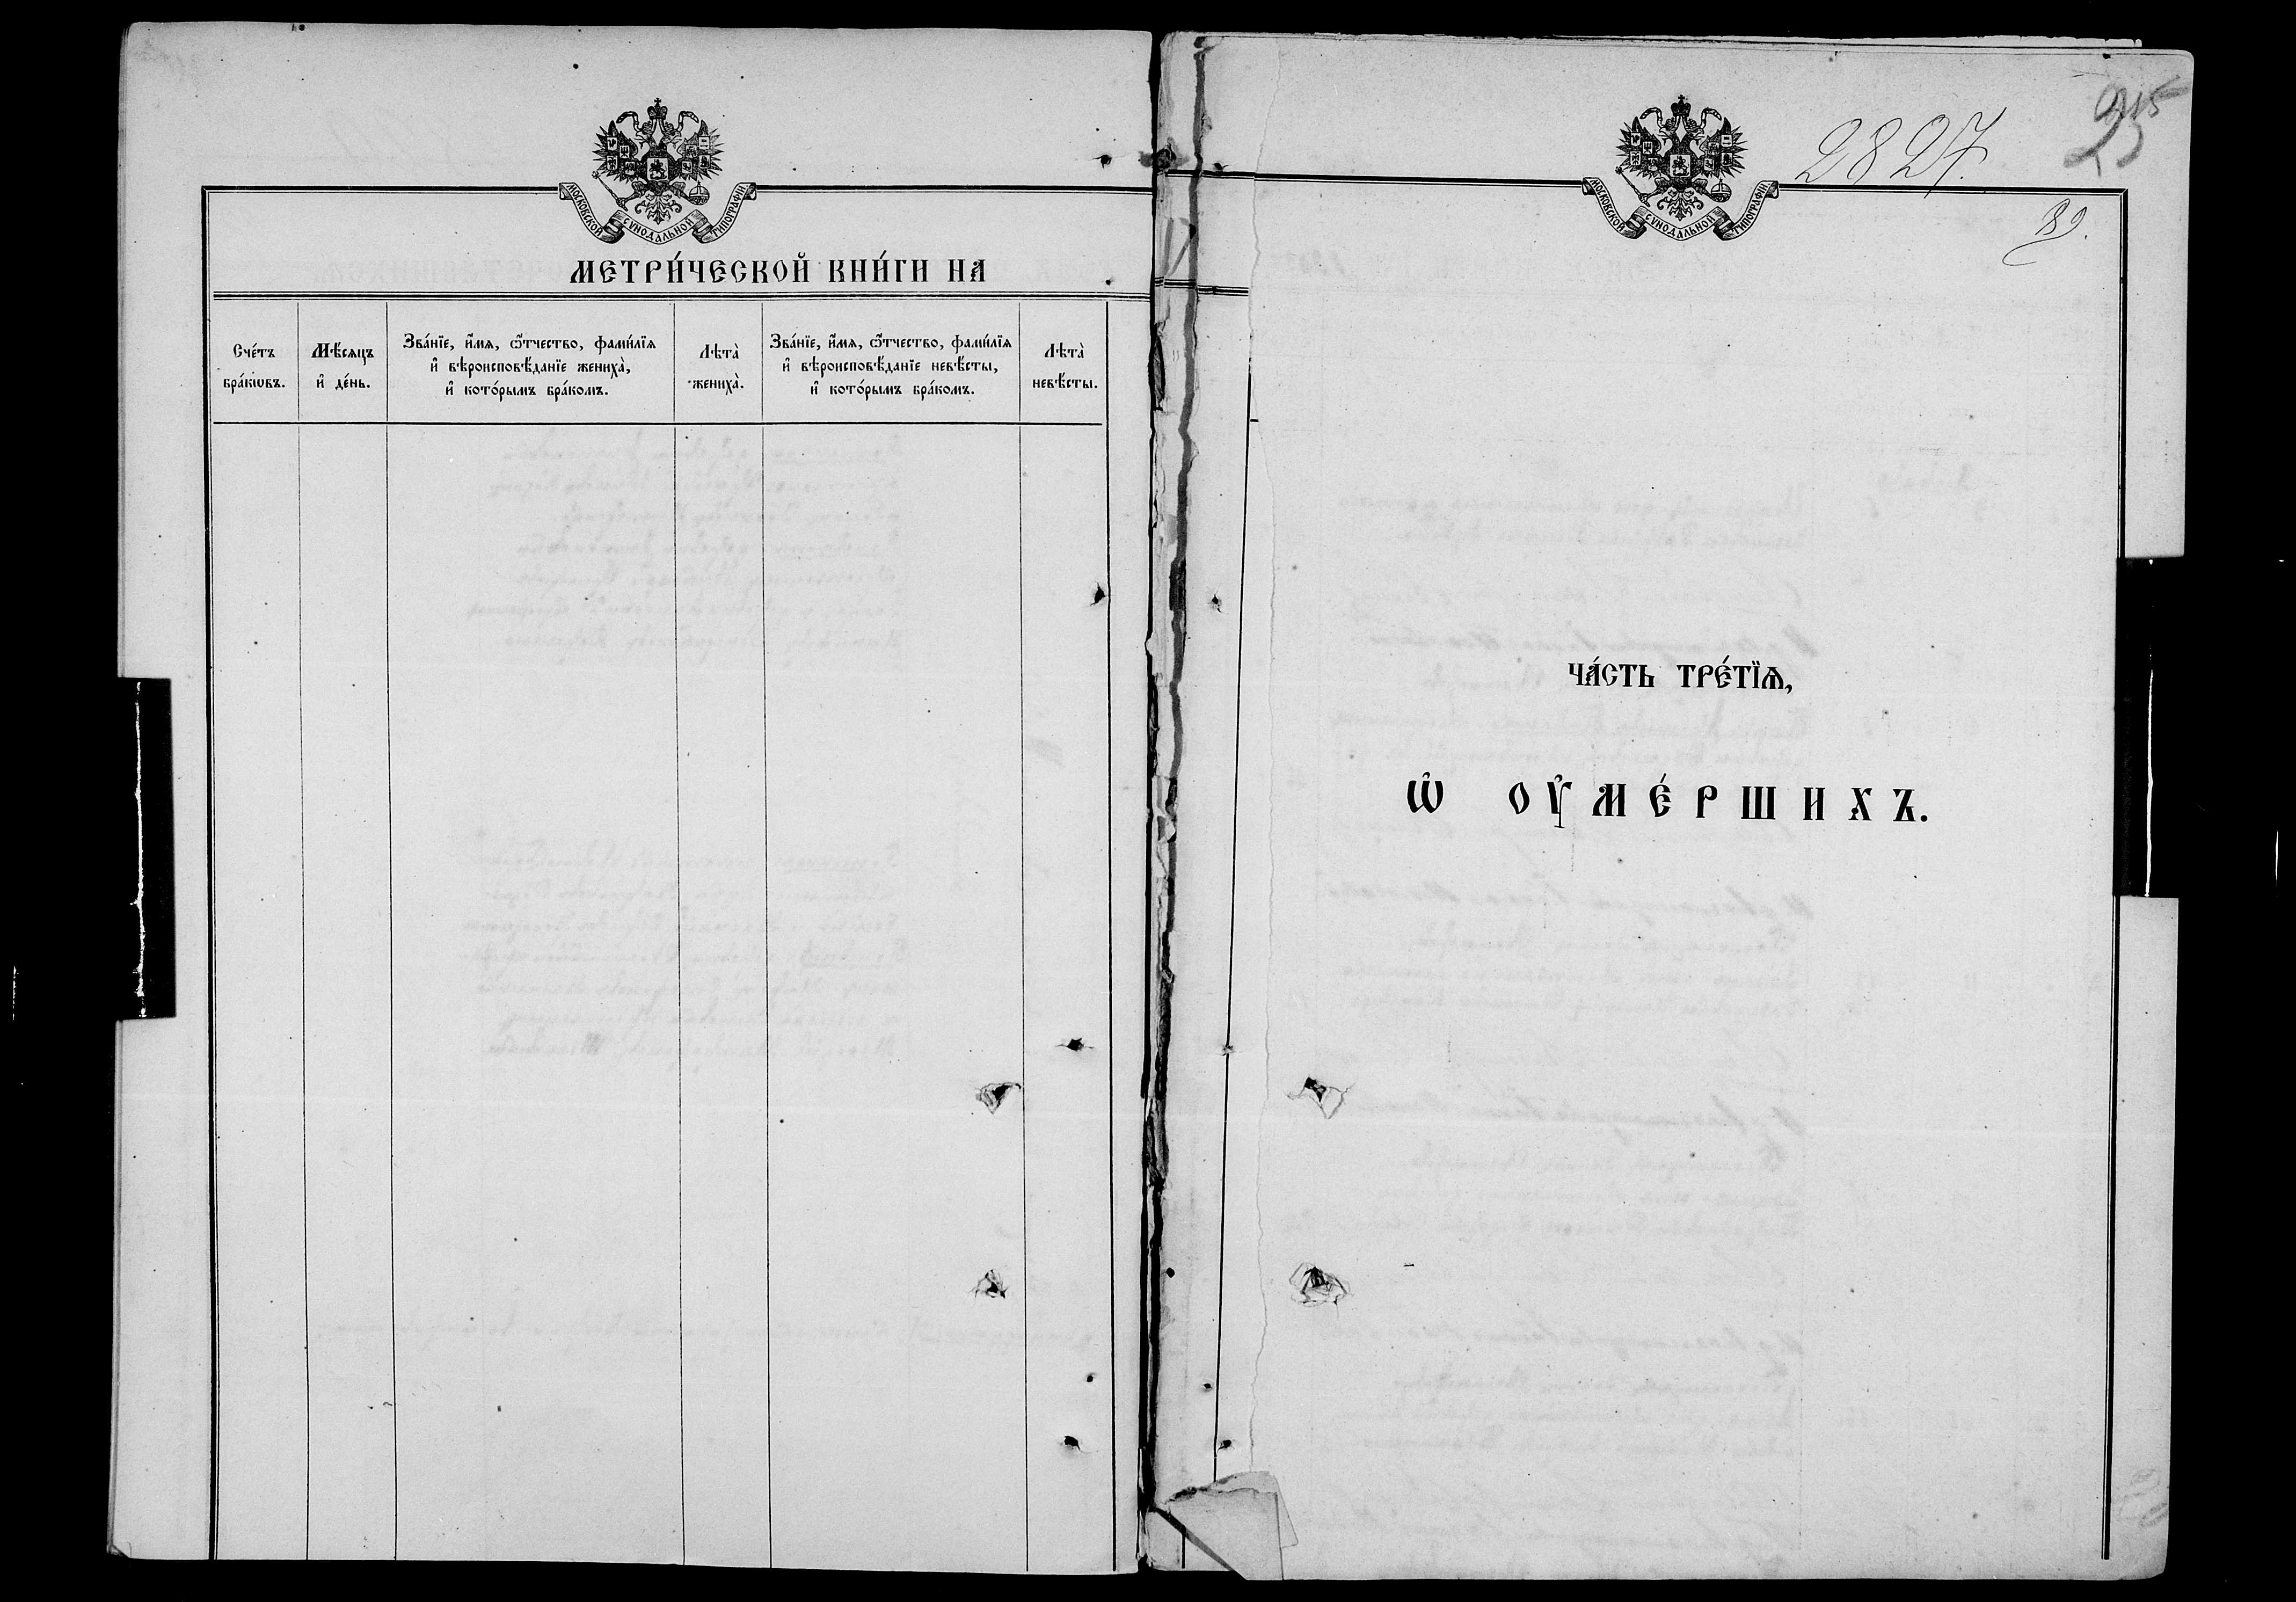 МОСКОВСКОЙ СѴНОДАЛЬНОЙ ТИПОГРАФІИ
МЕТРИ́ЧЕСКОЙ КНИ́ГИ НА
Сче́тъ
бра́кѡвъ.
Мѣ́сяцъ
и҆ де́нь.
Зва́нїе, и҆́мѧ, ѻ҆́тчество, фами́лїѧ
и҆ вѣроисповѣ́данїе жениха̀,
и҆ кото́рымъ бра́комъ.
Лѣта̀
жениха̀.
Зва́нїе, и҆́мѧ, ѻ҆́тчество, фами́лїѧ
и҆ вѣроисповѣ́данїе невѣ́сты,
и҆ кото́рымъ бра́комъ.
Лѣта̀
невѣ́сты.
МОСКОВСКОЙ СѴНОДАЛЬНОЙ ТИПОГРАФІИ
2827.
ЧА́СТЬ ТРЕ́ТЇѦ,
Ѡ҆ ОУ҆МЕ́РШИХЪ.